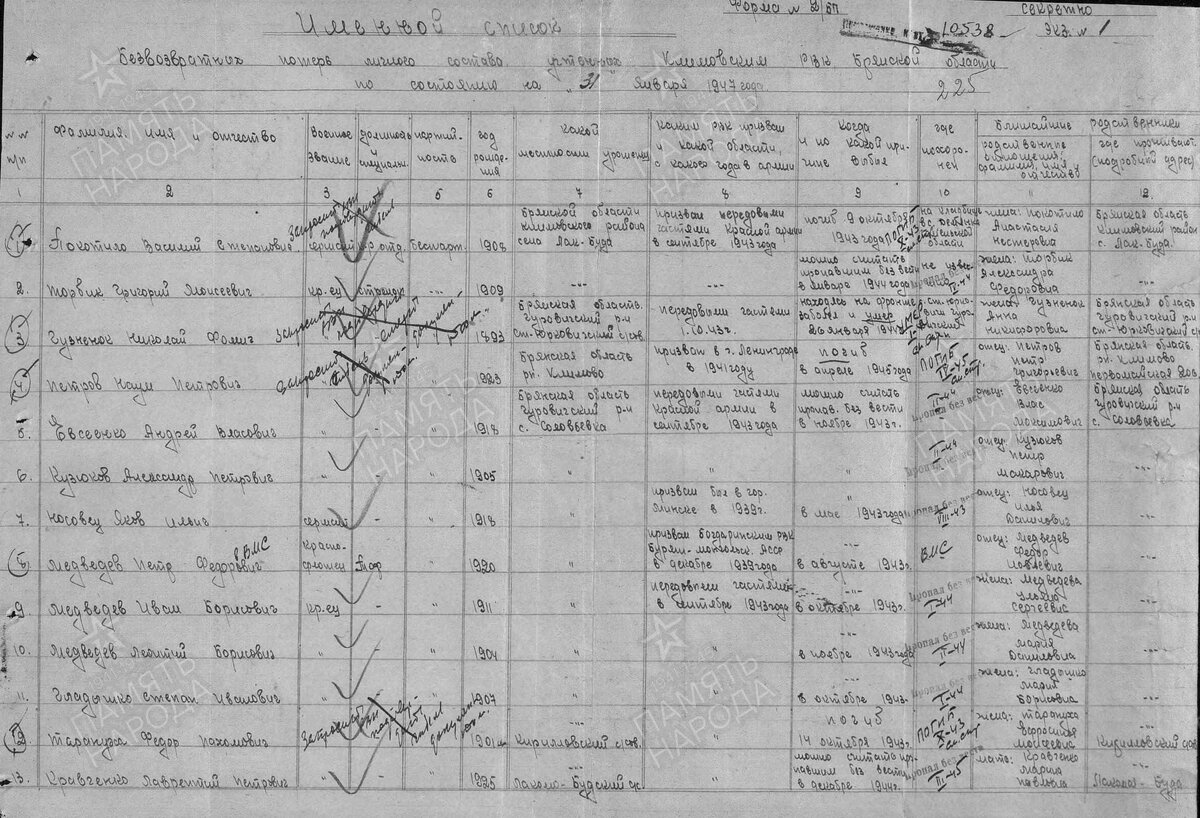 Форма № 2/БП
секретно
10538
экз. № 1
Именной список
безвозвратных потерь личного состава, учтенных Климовским РВК Брянской области
по состоянию на "31" января 1947 года
225
№№ п/п
фамилия имя и отчество
военное звание
должность и специальн.
партий-ность
год рожде-ния
какой местности уроженец
каким рвк призван и какой области, с какого года в армии
когда и по какой при-чине выбыл
где похоро-нен
Ближайшие родственники
родственные отношения, фамилия, имя и отчество
где проживают (подробный адрес)
1 2 3 4 5 6 7 8 9 10 11 12
1. Покотило Василий Степанович сержант к-р отд. беспарт. 1908
Брянской области Климовского района села Лак-Буда
призван передовыми частями Красной армии в сентябре 1943 года
погиб 9 октября 1943 года
ПОГИБ X-43
жена: Покотило Анастасия Нестеровна
Брянская область Климовский район с. Лак-Буда.
2. Торбик Григорий Моисеевич кр-ец стрелок -"- 1909 -"- -"-
можно считать пропавшим без вести в январе 1944 года
не извес.
жена: Торбик Александра Федоровна
-"-
3. Гузненок Николай Фомич 1893
Брянская область. Чуровичский р-н ст-Юрковичский с/сов.
передовыми частями 1.10.43 г.
находясь на фронте заболел и умер 26 января 1944
жена: Гузненок Анна Никифоровна
Брянская область Чуровичский р-н ст-Юрковичский с/с
4. Петров Наум Петрович 1923
Брянская область рн. Климово
призван в г. Ленинграде в 1941 году
погиб в апреле 1945 года
ПОГИБ IV-45
отец: Петров Петр Григорьевич
Брянская область. рн. Климово Первомайская
5. Евсеенко Андрей Власович - " 1918
Брянская область Чуровичский р-н с. Соловьевка
передовыми частями Красной армии в сентябре 1943 года
можно считать пропав. без вести в ноябре 1943 г.
пропал без вести II-44
отец: Евсеенко Влас Максимович
Брянская область Чуровичский р-н с. Соловьевка
6. Кузюков Александр Петрович " - " 1905 " " "
пропал без вести II-44
отец: Кузюков Петр Макарович
-"-
7. Носовец Яков Ильич сержант - " 1918 "
призван был в гор. Минске в 1939 г.
" в мае 1943 года
пропал без вести VIII-43
отец: Носовец Илья Данилович
-"-
8. Медведев Петр Федорович ВМС красно-флотец " 1920 "
призван Богдаринским рвк Бурят-монгольск. АССР в декабре 1939 года
-"- в августе 1943 г.
ВМС
отец: Медведев Федор Иовлевич
-"-
9. Медведев Иван Борисович кр-ец - " 1911 "
передовыми частями в сентябре 1943 года
-"- в октябре 1943 г.
пропал без вести I-44
жена: Медведева Ульяна Сергеевна
-"-
10. Медведев Леонтий Борисович " - " 1904 " "
-"- в ноябре 1943 года
пропал без вести II-44
жена: Медведева Мария Даниловна
-"-
11. Гладышко Степан Иванович " - " 1907 " "
-"- в октябре 1943 г.
пропал без вести I-44
жена: Гладышко Мария Борисовна
-"-
12. Тарануха Федор Пахомович 1901
-"- Кирилловский с/сов. "
погиб 14 октября 1943 г.
ПОГИБ X-43
жена: Тарануха Ефросиния Моисеевна
-"- Кирилловский с/сов
13. Кравченко Лаврентий Петрович " - " 1925
-"- Лакомо-Будский с/с. "
можно считать про-павшим без вести в декабре 1944 г.
пропал без вести III-45
мать: Кравченко Мария Павловна
-"- Лакомая-Буда
ПАМЯТЬ НАРОДА
ПАМЯТЬ НАРОДА
ПАМЯТЬ НАРОДА
ПАМЯТЬ НАРОДА
ПАМЯТЬ НАРОДА
ПАМЯТЬ НАРОДА
ПАМЯТЬ НАРОДА